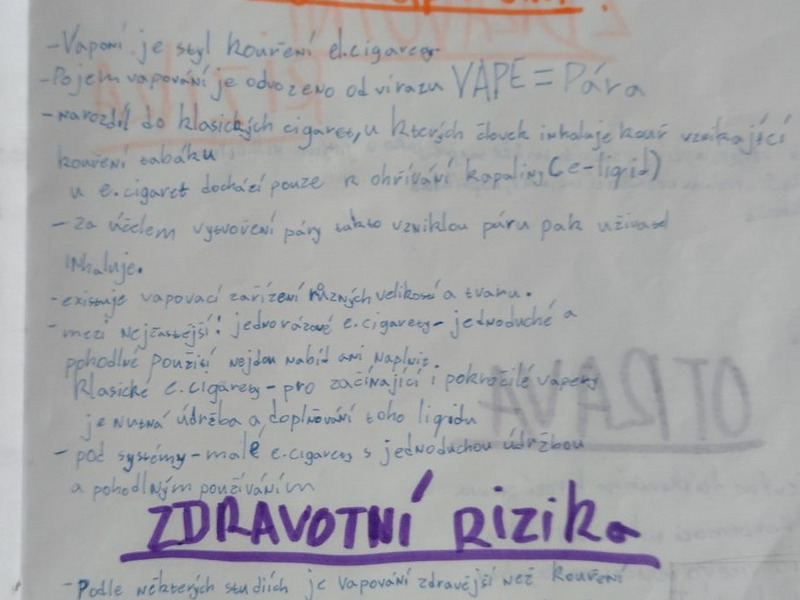 -Vaponí je styl kouření el.cigarety
-Pojem vapování je odvozeno od virazu VAPE = Pára
-narozdíl do klasických cigaret, u kterých človek inhaluje kouř vznikající
kouření tabáku
u e.cigaret dochází pouze k ohřívání kapaliny (e-liqid)
- za účelem vytvoření páry takto vzniklou páru pak uživatel
inhaluje.
-existuje vapovací zařízení různých velikostí a tvaru.
-mezi nejčastější: jednorázové e.cigarety- jednoduché a
pohodlné použití nejdou nabíd ani naplnit.
klasické e.cigarety-pro začínající i pokročilé vapery
je nutná údržba a doplňování toho liqidu
- pod systémy-malé e.cigarety s jednoduchou údržbou
a pohodlným používáním
ZDRAVOTNÍ rizika
-Podle některých studiích je vapování zdravější než kouření
OTRAVA